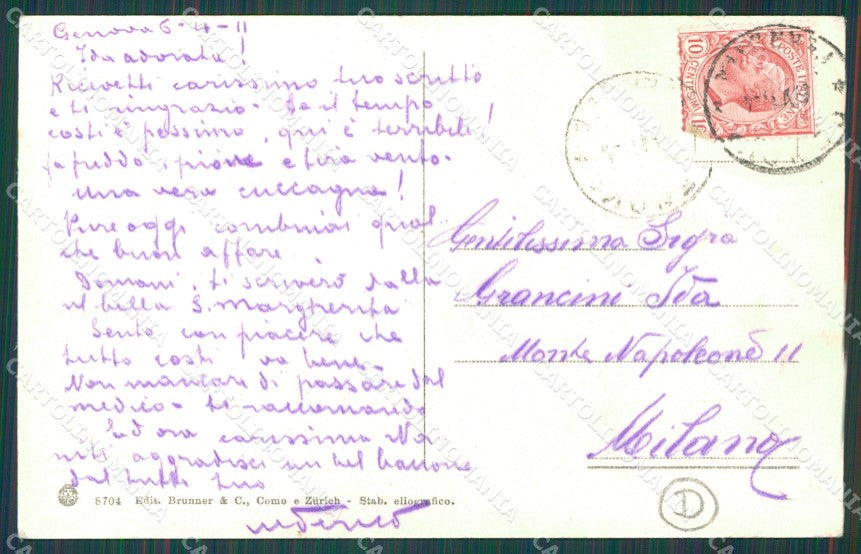 Genova 6-4-11
Ida adorata!
Ricevetti carissimo tuo scritto
e ti ringrazio. Se il tempo
costì è pessimo, qui è terribile!
fa freddo, piove e tira vento.
una vera cuccagna!
Pure oggi combinai qual
che buon affare.
Domani, ti scriverò dalla
bella S. Margherita
Sento con piacere che
tutto costì va bene.
Non mancare di passare dal
medico. ti raccomando
Ed ora carissima
aggradisci un bel bacione
dal tutto tuo
Gentilissima Sigra
Grancini Ida
Monte Napoleone 11
Milano
1
8704 Edit. Brunner & C., Como e Zürich - Stab. eliografico.
POSTE ITALIANE
10 CENTESIMI 10
CARTOLINOMANIA